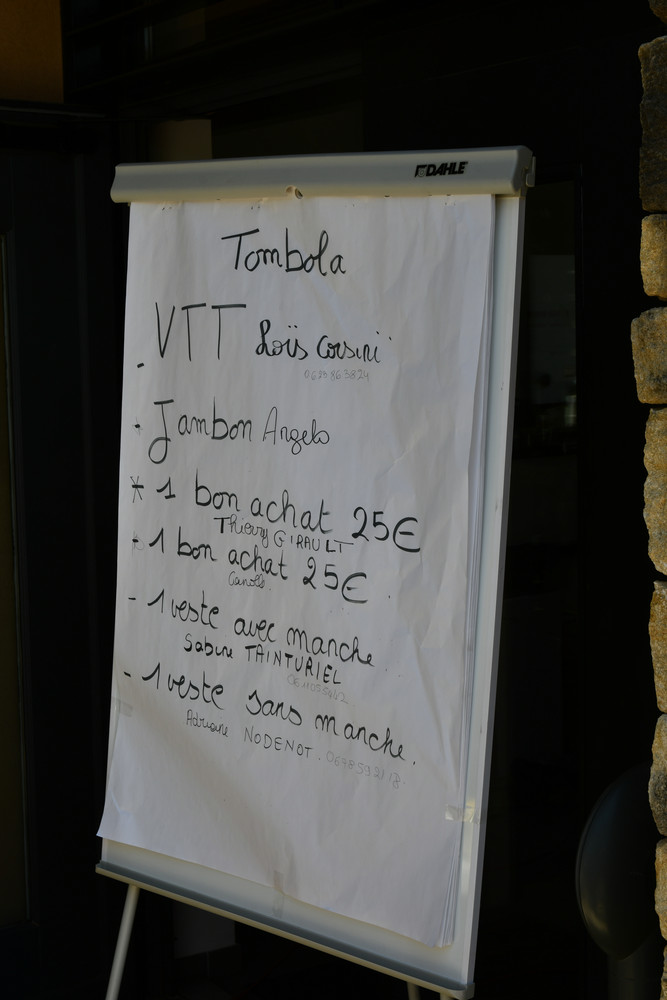 DAHLE
Tombola
- VTT Loïs Corsini
0629863824
- Jambon Angelo
* 1 bon achat 25€
Thierry GIRAULT
* 1 bon achat 25€
- 1 veste avec manche
Sabine TAINTURIEL
- 1 veste sans manche.
Adriane NODENOT.